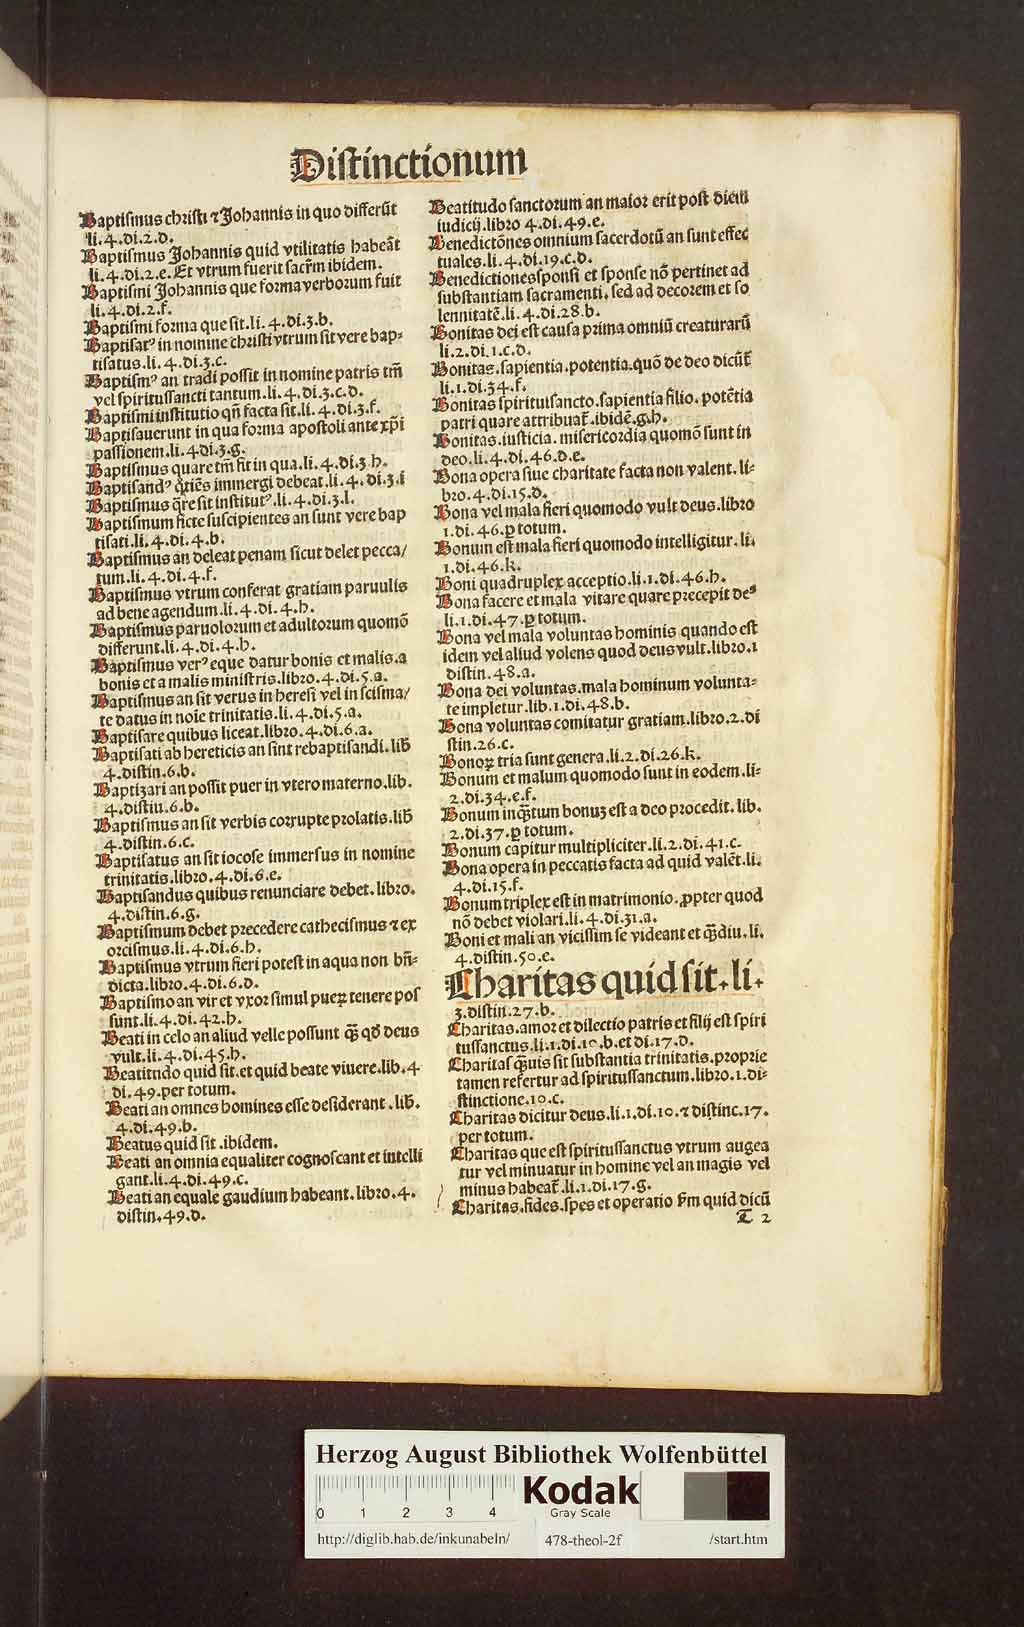 Distinctionum
Baptismus christi ⁊ Johannis in quo differūt
li.4.di.2.d.
Baptismus Johannis quid vtilitatis habeāt
li.4.di.2.e. Et vtrum fuerit sacr̄m ibidem.
Baptismi Johannis que forma verborum fuit
li.4.di.2.f.
Baptismi forma que sit.li.4.di.3.b.
Baptisatꝰ in nomine christi vtrum sit vere bap-
tisatus.li.4.di.3.c.
Baptismꝰ an tradi possit in nomine patris tm̄
vel spiritussancti tantum.li.4.di.3.c.d.
Baptismi institutio qn̄ facta sit.li.4.di.3.f.
Baptisauerunt in qua forma apostoli ante xp̄i
passionem.li.4di.3.g.
Baptismus quare tm̄ fit in qua.li.4.di.3 h.
Baptisandꝰ q̄tiēs immergi debeat.li.4.di.3.i
Baptismus q̄re sit institutꝰ.li.4.di.3.l.
Baptismum ficte suscipientes an sunt vere bap
tisati.li.4.di.4.b.
Baptismus an deleat penam sicut delet pecca/
tum.li.4.di.4.f.
Baptismus vtrum conferat gratiam paruulis
ad bene agendum.li.4.di.4.h.
Baptismus paruolorum et adultorum quomō
differunt.li.4.di.4.h.
Baptismus verꝰ eque datur bonis et malis.a
bonis et a malis ministris.libro.4.di.5.a.
Baptismus an sit verus in heresi vel in scisma/
te datus in noīe trinitatis.li.4.di.5.a.
Baptisare quibus liceat.libro.4.di.6.a.
Baptisati ab hereticis an sint rebaptisandi.lib̄
4.distin.6.b.
Baptizari an possit puer in vtero materno.lib.
4.distiu.6.b.
Baptismus an sit verbis corrupte prolatis.lib̄
4.distin.6.c.
Baptisatus an sit iocose immersus in nomine
trinitatis.libro.4.di.6.e.
Baptisandus quibus renunciare debet.libro.
4.distin.6.g.
Baptismum debet precedere cathecismus ⁊ ex
orcismus.li.4.di.6.h.
Baptismus vtrum fieri potest in aqua non bn̄-
dicta.libro.4.di.6.d.
Baptismo an vir et vxor simul puerꝝ tenere pos
sunt.li.4.di.42.h.
Beati in celo an aliud velle possunt q̄ꝫ qd̄ deus
vult.li.4.di.45.h.
Beatitudo quid sit.et quid beate viuere.lib.4
di.49.per totum.
Beati an omnes homines esse desiderant.lib̄.
4.di.49.b.
Beatus quid sit.ibidem.
Beati an omnia equaliter cognoscant et intelli
gant.li.4.di.49.c.
Beati an equale gaudium habeant.libro.4.
distin.49.d.
Beatitudo sanctorum an maior erit post diem
iudicij.libro 4.di.49.e.
Benedictōnes omnium sacerdotū an sunt effec
tuales.li.4.di.19.c.d.
Benedictiones sponsi et sponse nō pertinet ad
substantiam sacramenti.sed ad decorem et so
lennitatē.li.4.di.28.b.
Bonitas dei est causa prima omniū creaturarū
li.2.di.1.c.d.
Bonitas.sapientia.potentia.quō de deo dicūt̄
li.1.di.34.f.
Bonitas spirituisancto.sapientia filio.potētia
patri quare attribuat̄.ibidē.g.h.
Bonitas.iusticia.misericordia quomō sunt in
deo.li.4.di.46.d.e.
Bona opera siue charitate facta non valent.li-
bro.4.di.15.d.
Bona vel mala fieri quomodo vult deus.libro
1.di.46.ꝑ totum.
Bonum est mala fieri quomodo intelligitur.li.
1.di.46.k.
Boni quadruplex acceptio.li.1.di.46.h.
Bona facere et mala vitare quare precepit deꝰ
li.1.di.47.ꝑ totum.
Bona vel mala voluntas hominis quando est
idem vel aliud volens quod deus vult.libro.1
distin.48.a.
Bona dei voluntas.mala hominum volunta-
te impletur.lib.1.di.48.b.
Bona voluntas comitatur gratiam.libro.2.di
stin.26.c.
Bonoꝝ tria sunt genera.li.2.di.26.k.
Bonum et malum quomodo sunt in eodem.li-
2.di.34.e.f.
Bonum inq̄ꝫtum bonuꝫ est a deo procedit.lib.
2.di.37.ꝑ totum.
Bonum capitur multipliciter.li.2.di.41.c.
Bona opera in peccatis facta ad quid valēt.li.
4.di.15.f.
Bonum triplex est in matrimonio.ꝓpter quod
nō debet violari.li.4.di.31.a.
Boni et mali an vicissim se videant et q̄ꝫdiu.li.
4.distin.50.e.
Charitas quid sit.li.
3.distin.27.b.
Charitas.amor et dilectio patris et filij est spiri
tussanctus.li.1.di.10.b.et di.17.d.
Charitas q̄ꝫuis sit substantia trinitatis.proprie
tamen refertur ad spiritussanctum.libro.1.di-
stinctione.10.c.
Charitas dicitur deus.li.1.di.10.⁊ distinc.17.
per totum.
Charitas que est spiritussanctus vtrum augea
tur vel minuatur in homine vel an magis vel
minus habeat̄.li.1.di.17.g.
Charitas.fides.spes et operatio ẜm quid dicū
T 2
Herzog August Bibliothek Wolfenbüttel
0 1 2 3 4
Kodak
Gray Scale
http://diglib.hab.de/inkunabeln/ 478-theol-2f /start.htm